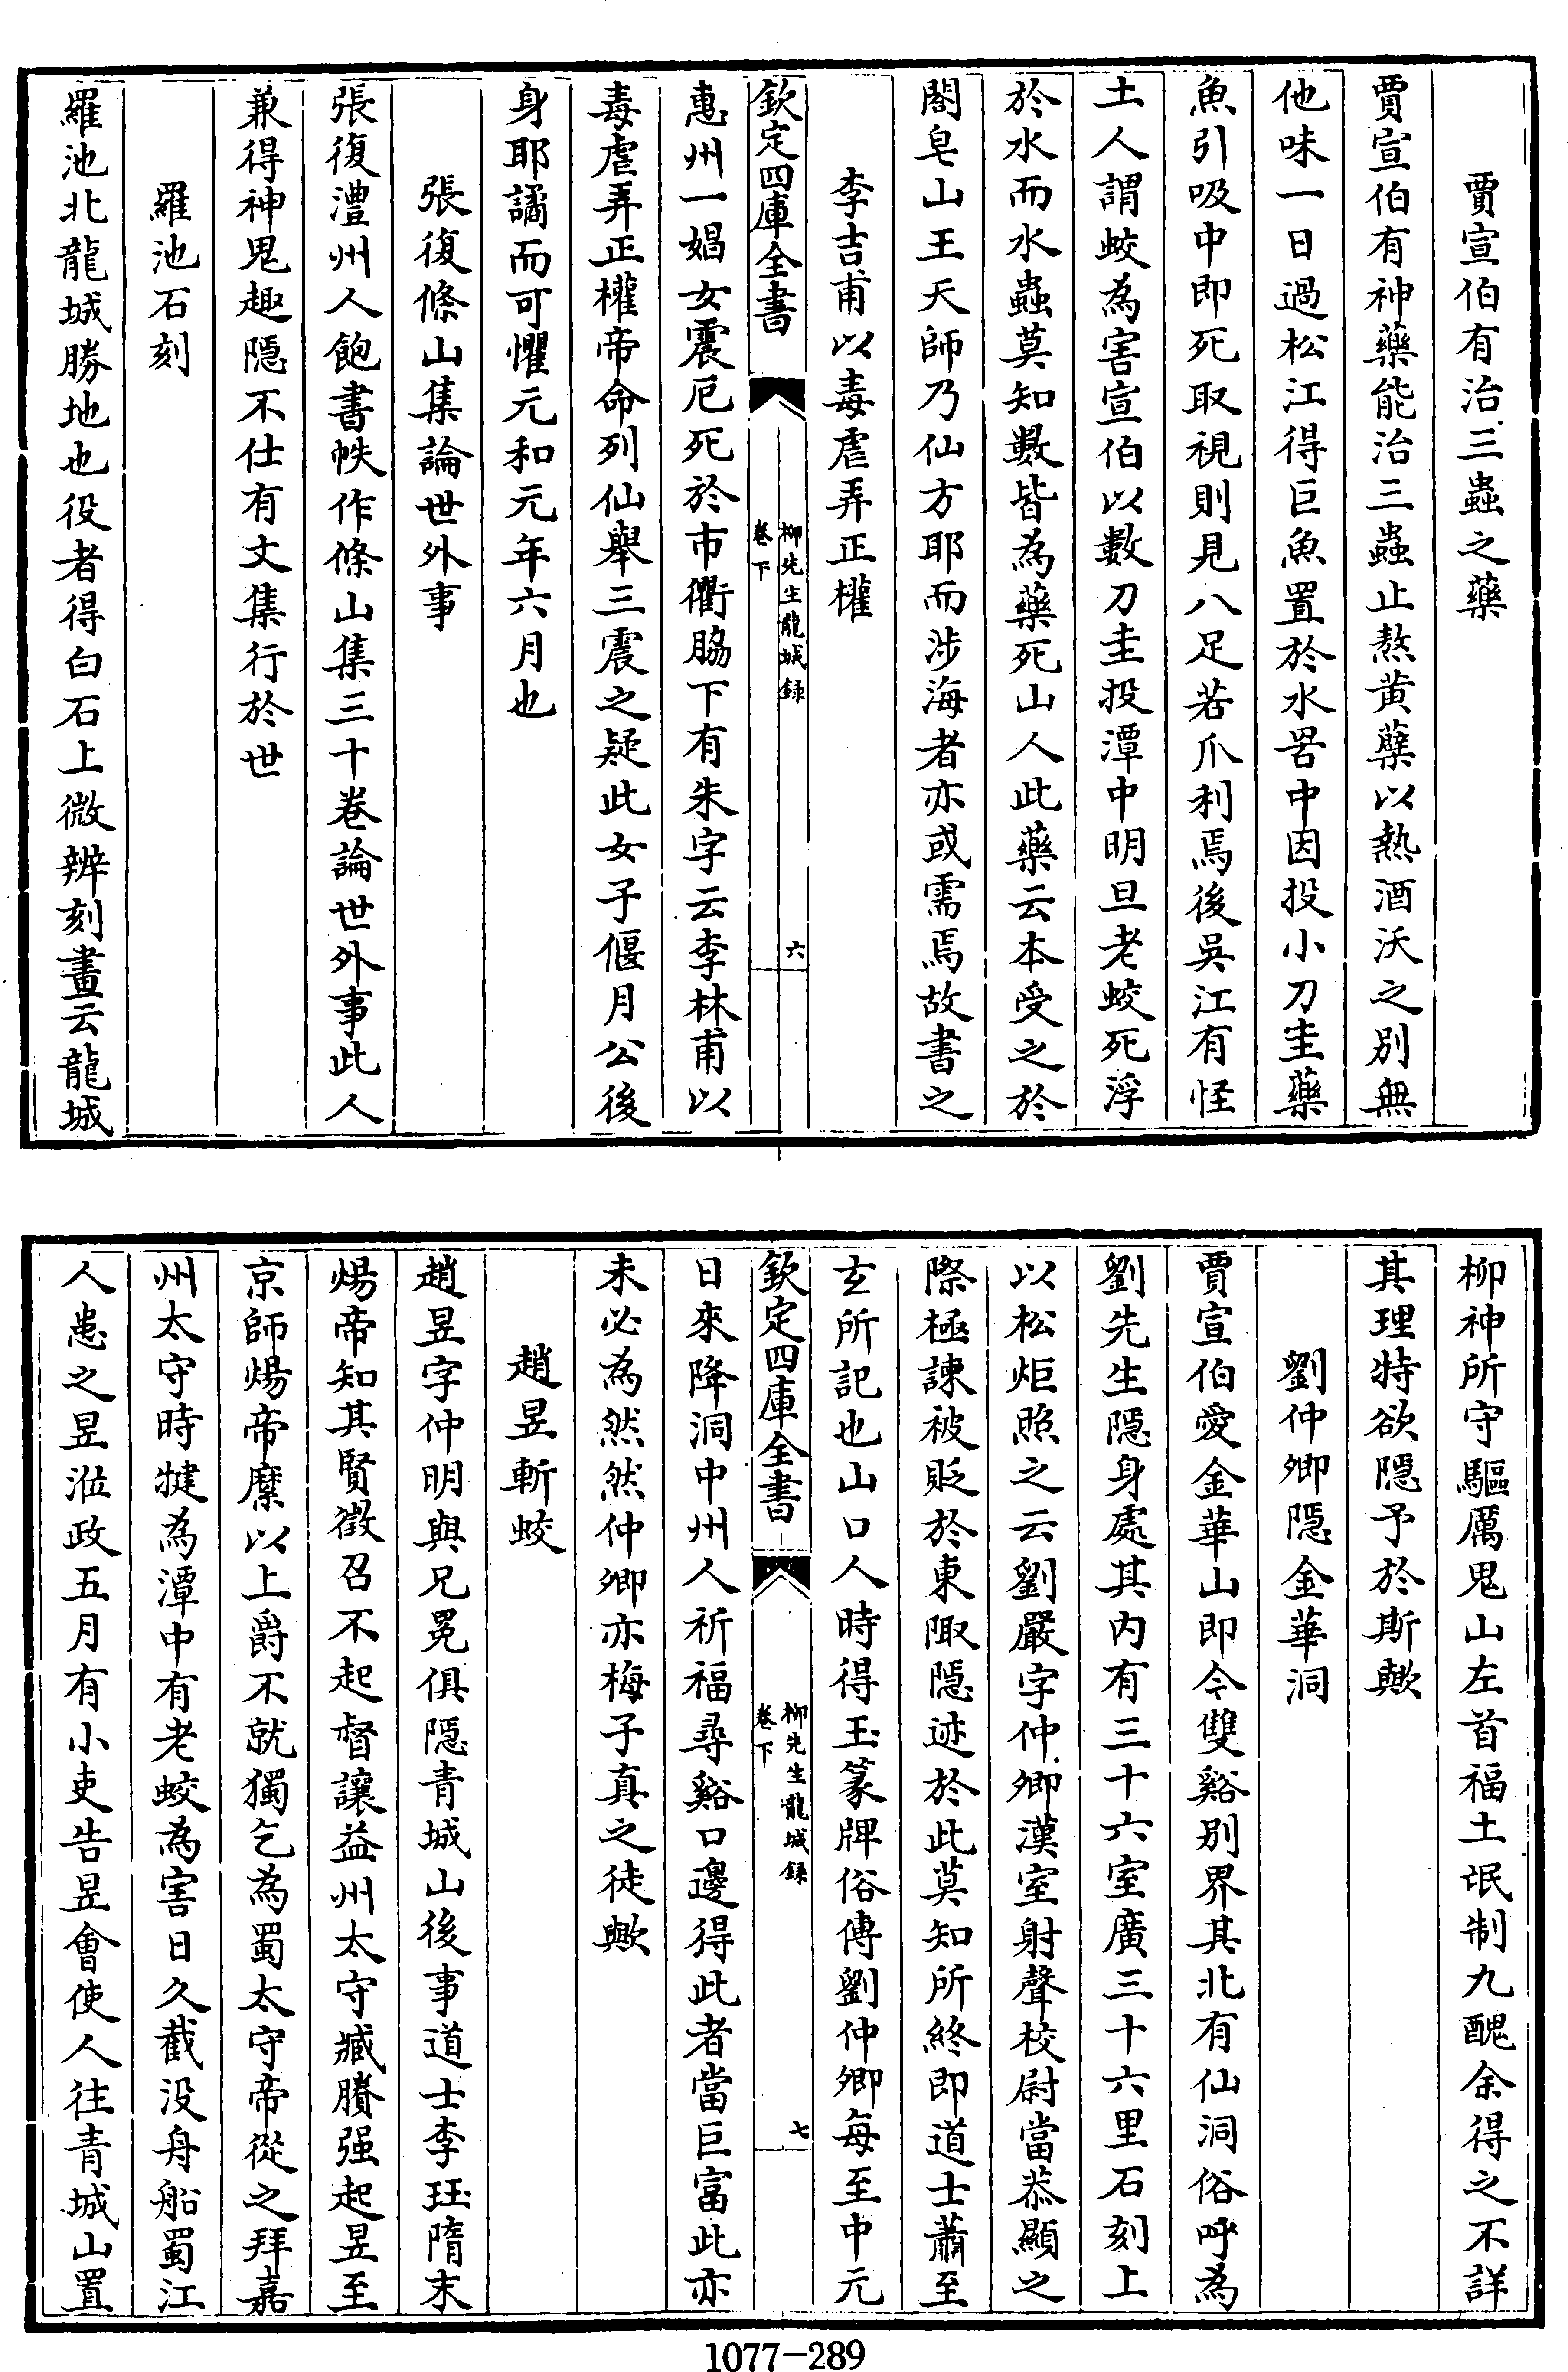 賈宣伯有治三蟲之藥
賈宣伯有神藥能治三蟲止熬黄蘗以熱酒沃之别無
他味一日過松江得巨魚置於水罟中因投小刀圭藥
魚引吸中即死取視則見八足若爪利焉後吳江有怪
土人謂蛟為害宣伯以數刀圭投潭中明旦老蛟死浮
於水而水蟲莫知數皆為藥死山人此藥云本受之於
閤皂山王天師乃仙方耶而涉海者亦或需焉故書之
李吉甫以毒虐弄正權
欽定四庫全書
柳先生龍城録
卷下
六
惠州一娼女震厄死於市衢脇下有朱字云李林甫以
毒虐弄正權帝命列仙舉三震之疑此女子偃月公後
身耶譎而可懼元和元年六月也
張復條山集論世外事
張復澧州人飽書帙作條山集三十卷論世外事此人
兼得神鬼趣隱不仕有文集行於世
羅池石刻
羅池北龍城勝地也役者得白石上微辨刻畫云龍城
柳神所守驅厲鬼山左首福土氓制九醜余得之不詳
其理特欲隱予於斯歟
劉仲卿隱金華洞
賈宣伯愛金華山即今雙谿别界其北有仙洞俗呼為
劉先生隱身處其内有三十六室廣三十六里石刻上
以松炬照之云劉嚴字仲卿漢室射聲校尉當恭顯之
際極諫被貶於東陬隱迹於此莫知所終即道士蕭至
玄所記也山口人時得玉篆牌俗傳劉仲卿每至中元
欽定四庫全書
柳先生龍城録
卷下
七
日來降洞中州人祈福尋谿口邊得此者當巨富此亦
未必為然然仲卿亦梅子真之徒歟
趙昱斬蛟
趙昱字仲明與兄冕俱隱青城山後事道士李珏隋末
煬帝知其賢徵召不起督讓益州太守臧賸强起昱至
京師煬帝縻以上爵不就獨乞為蜀太守帝從之拜嘉
州太守時犍為潭中有老蛟為害日久截没舟船蜀江
人患之昱涖政五月有小吏告昱會使人往青城山置
1077-289